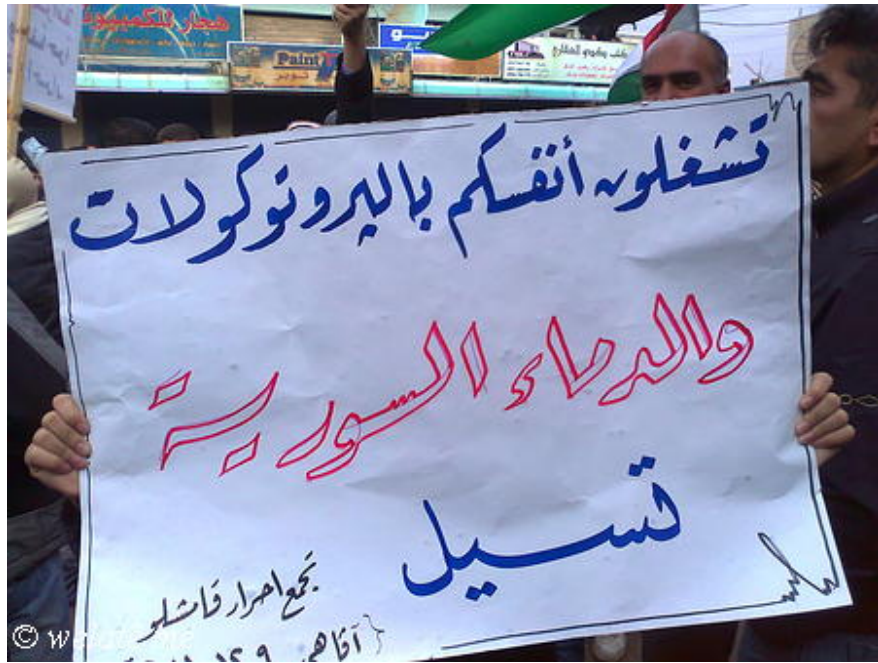 هجار للكمبيوتر
Paint
تشغلون أنفسكم بالبروتوكولات
والدماء السورية
تسيل
تجمع احرار قامشلو
{ آفاهي